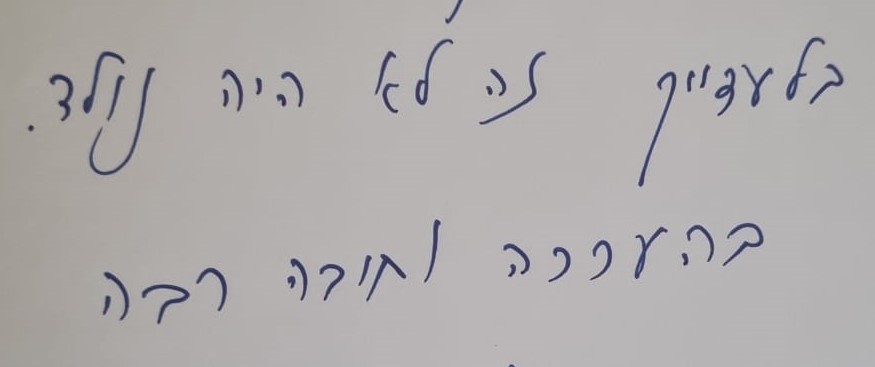 בלעדייך זה לא היה נולד.
בהערכה וחיבה רבה